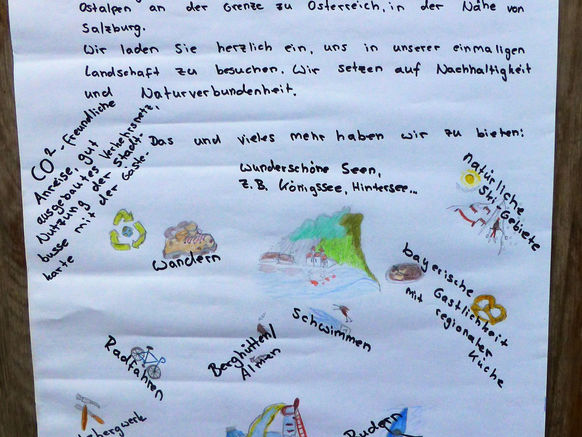 Ostalpen an der Grenze zu Österreich, in der Nähe von
Salzburg.
Wir laden Sie herzlich ein, uns in unserer einmaligen
Landschaft zu besuchen. Wir setzen auf Nachhaltigkeit
und Naturverbundenheit.
Das und vieles mehr haben wir zu bieten:
CO2-freundliche
Anreise, gut
ausgebautes Verkehrsnetz,
Nutzung der Stadt-
busse mit der Gäste-
karte
Wunderschöne Seen,
z.B. Königssee, Hintersee...
natürliche
Ski-Gebiete
Wandern
bayerische
Gastlichkeit
mit regionaler
Küche
Schwimmen
Radfahren
Berghütten/
Almen
Rudern